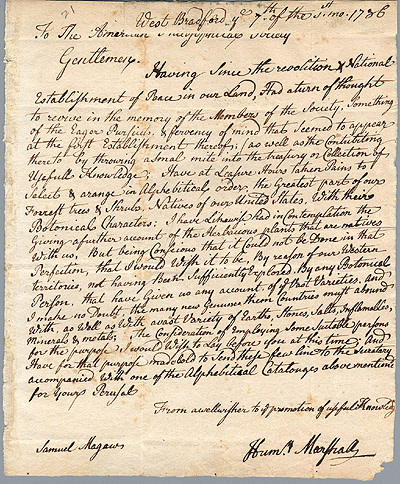 West Bradford ye 7th. of the 1st. mo. 1786
To The American Philosophical Society
Gentlemen,
Having Since the revolition & National
Establishment of Peace in our Land, Had a turn of thought
to revive in the memory of the Members of the Society, Something
of the Eager Pursiut, & fervency of mind that Seemed to appear
at the first Establishment thereof; as well as the Contibiting
thereto by throwing a Small mite into the treasury or Collection of
Usefull Knowledge; Have at Leasure Hours taken Pains to
Select & arange in Alphabitical order, the Greatest part of our
Forrest trees & Shrubs Natives of our United States, With their
Botanical Characters: I have Likewise had in Contemplation the
Giving a further account of the Herbacious plants that are natives
With us, But being Consious that it Could not be Done in that
Perfection, that I would Wish it to be, By reason of our Western
territories, not having Been Sufficiently Explored, By any Botanical
Person, that have Given us any account of Vast Varieties, And
I make no Doubt the many new Genuses them Countries must abound
With, as Well as With a vast Variety of Earths, Stones, Salts, Inflamables,
Minerals & metals; The Consideration of Employing Some Suitable persons
for the purpose I would Wish to Lay before you at this time; And
Have for that purpose mad bold to Send these few line to the Secratary
accompanied With one of the Alphabitical Catalouges above mentione
for Yours Perusal
From a wellwisher to ye promotion of usful Knowledg
Samuel Magaws
Humy. Marshall